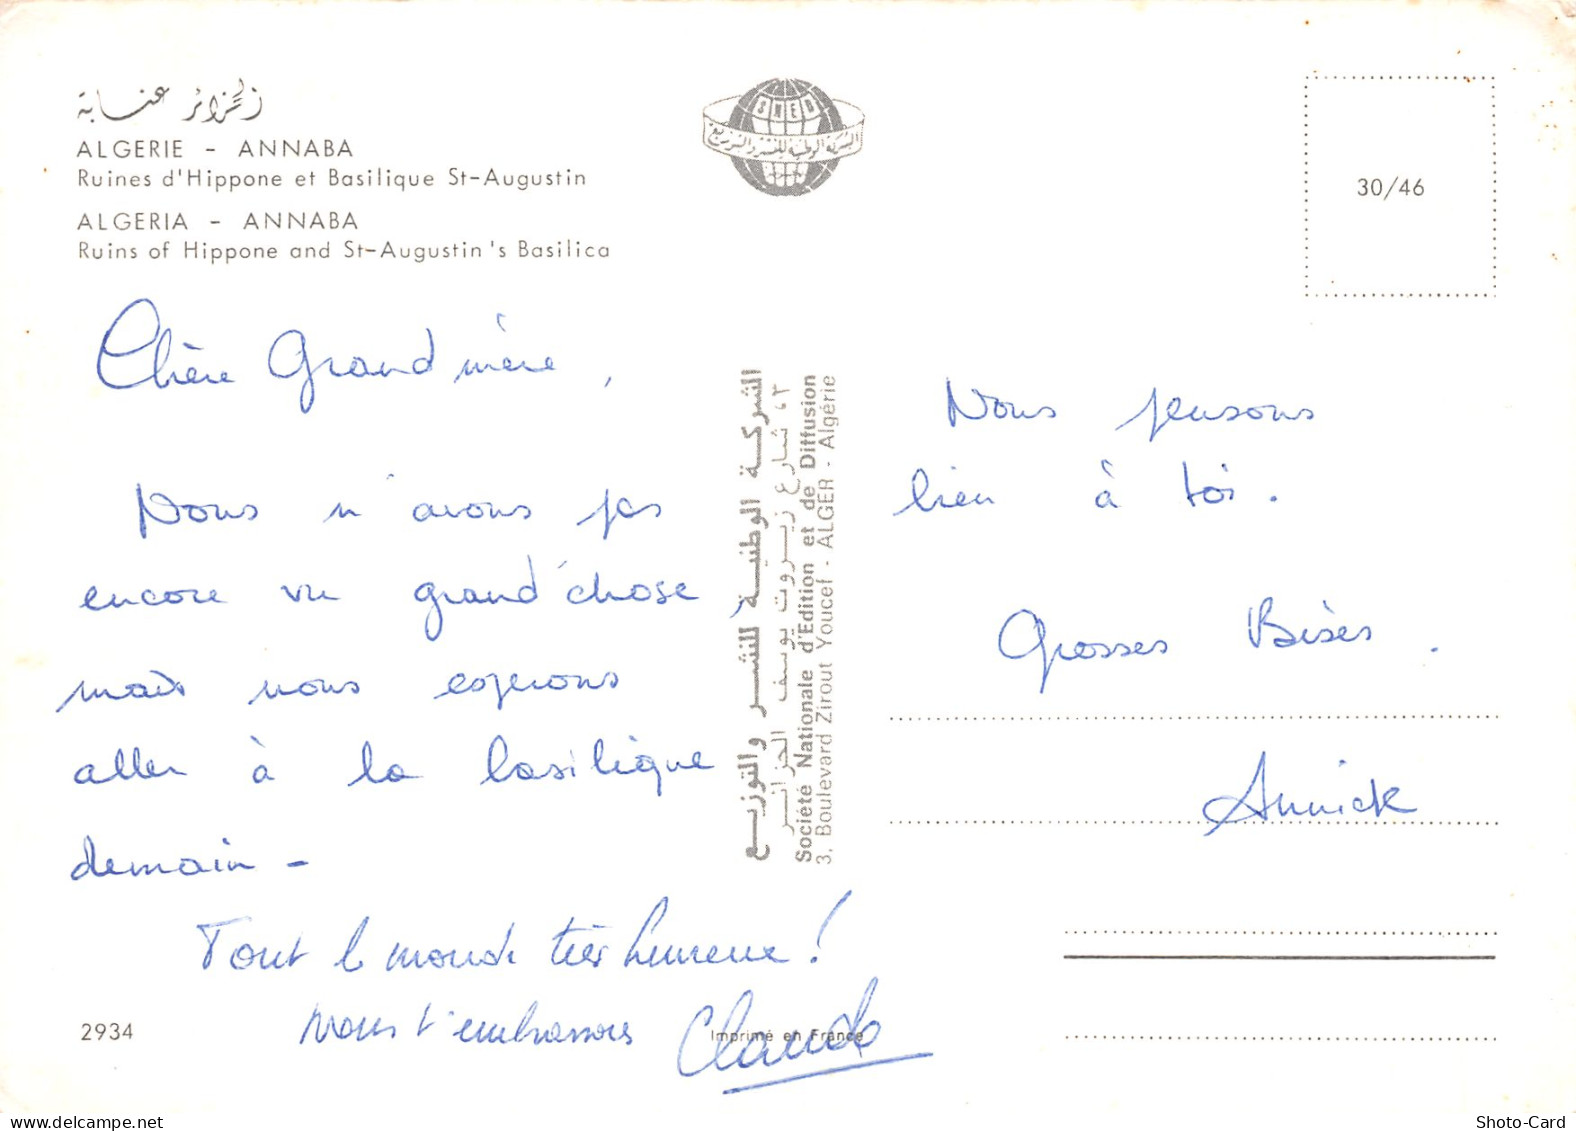 الجزائر عنابة
ALGERIE - ANNABA
Ruines d'Hippone et Basilique St-Augustin
ALGERIA - ANNABA
Ruins of Hippone and St-Augustin's Basilica
SNED
الشركة الوطنية للنشر والتوزيع
30/46
Chère Grand mère,
Nous n'avons pas
encore vu grand'chose
mais nous espérons
aller à la basilique
demain -
Tout le monde très heureux !
nous t'embrassons Claude
2934
Imprimé en France
الشركة الوطنية للنشر والتوزيع
٣، شارع زيروت يوسف الجزائر
Société Nationale d'Edition et de Diffusion
3, Boulevard Zirout Youcef - ALGER - Algérie
Nous pensons
bien à toi.
Grosses Bises.
Annick
delcampe.net
Shoto-Card